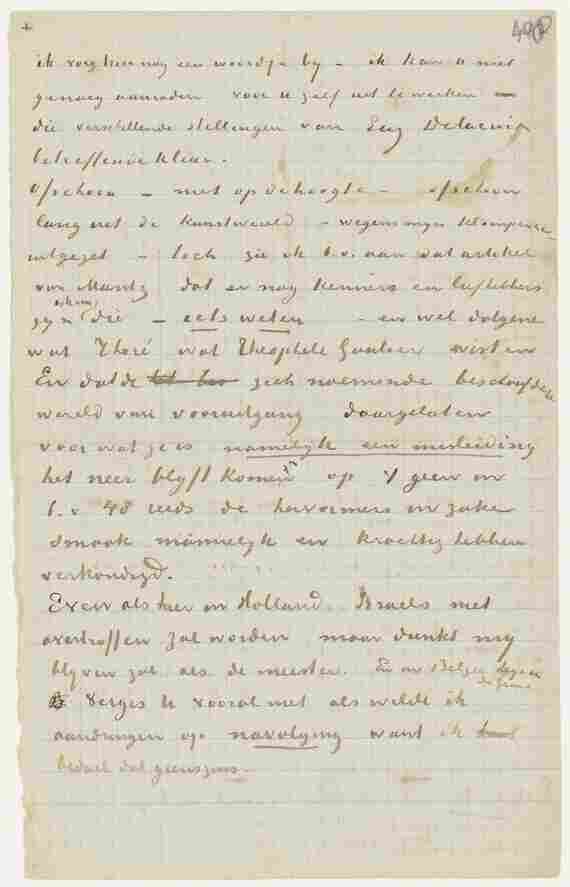 ik voeg hier nog een woordje by – ik kan u niet
genoeg aanraden voor u zelf uit te werken
die verschillende stellingen van Eug Delacroix
betreffende kleur.
Ofschoon – niet op de hoogte – ofschoon
lang uit de kunstwereld – wegens myn klompen
uitgezet – toch zie ik b.v. aan dat artikel
van Mantz dat er nog kenners en liefhebbers
zyn die – iets weten – en wel datgene
wat Thoré wat Theophile Gautier wisten
En dat de zich noemende beschaafde
wereld van vooruitgang daargelaten
voor wat ze is namelyk een misleiding
het neer blyft komen op 't geen in
b.v. 48 reeds de hervormers in zake
smaak mannelyk en krachtig hebben
verkondigd.
Even als hier in Holland Israels niet
overtroffen zal worden maar dunkt my
blyven zal als de meester. En in Belgie
Verges u vooral niet als wilde ik
aandringen op navolging want ik
bedoel dat geenszins –